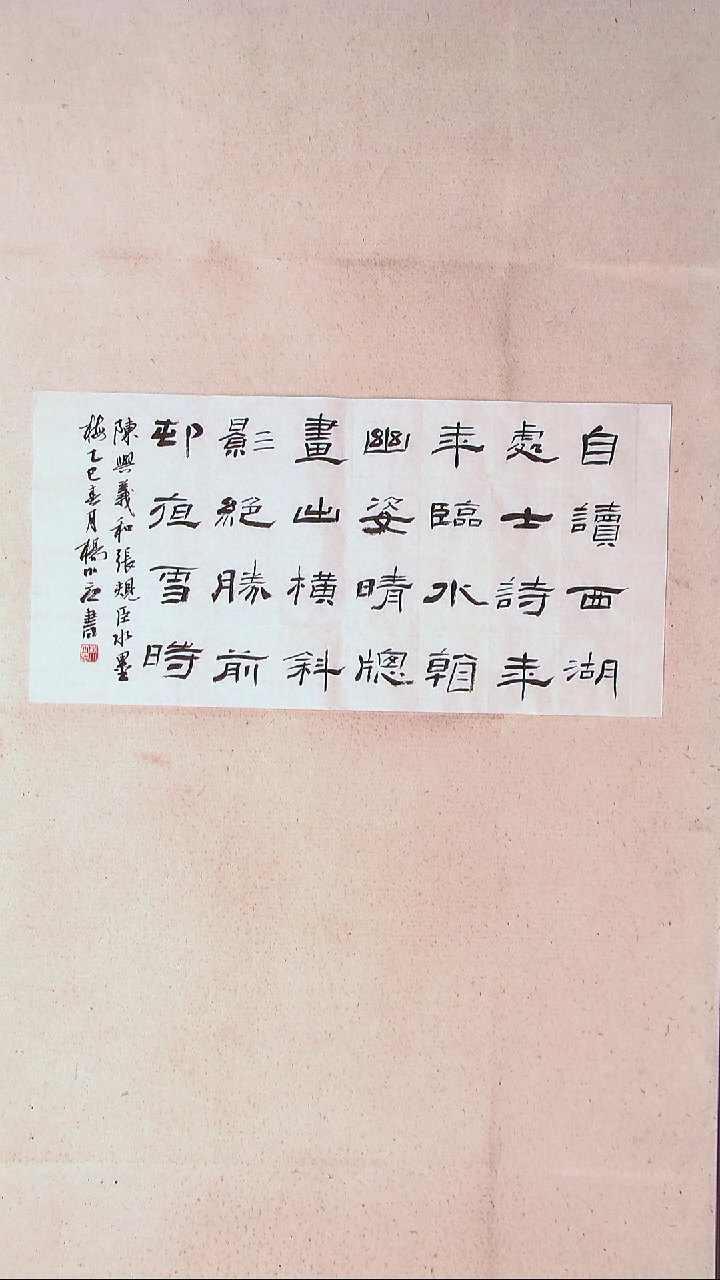 自讀西湖
處士詩年
年臨水看
幽姿晴牕
畫出橫斜
影絕勝前
邨夜雪時
陳與義和張規臣水墨
梅乙巳春月楊小書